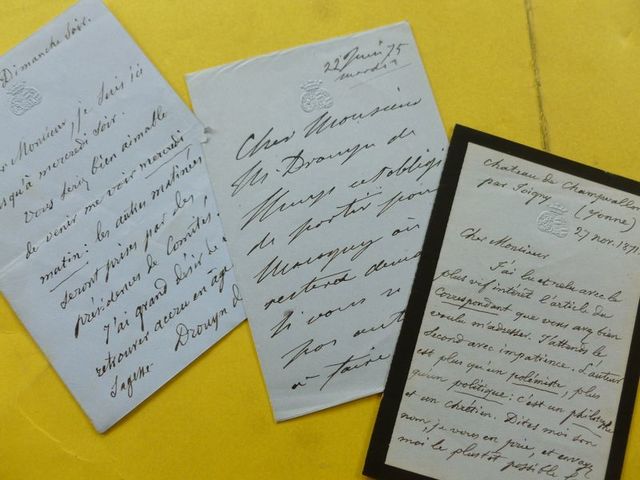 Dimanche Soir.
Monsieur, je suis ici
jusqu'à mercredi soir.
Vous seriez bien aimable
de venir me voir mercredi
matin: les autres matinées
seront prises par des
présidences de Comités.
J'ai grand désir de
retrouver accru en âge
Sagesse Drouyn d
22 Juin 75
mardi
Cher Monsieur
M. Drouyn de
Lhuys est obligé
de partir pour
si vous n
pas aut
à faire
Chateau de Champvallon
par Joigny (Yonne)
27 nov. 187
Cher Monsieur
J'ai lu et relu avec le
plus vif intérêt l'article du
Correspondant que vous avez bien
voulu m'adresser. J'attends le
second avec impatience. L'auteur
est plus qu'un polémiste, plus
qu'un politique: c'est un philosophe
et un chrétien. Dites moi son
nom, je vous en prie, et envoyez
moi le plustôt possible